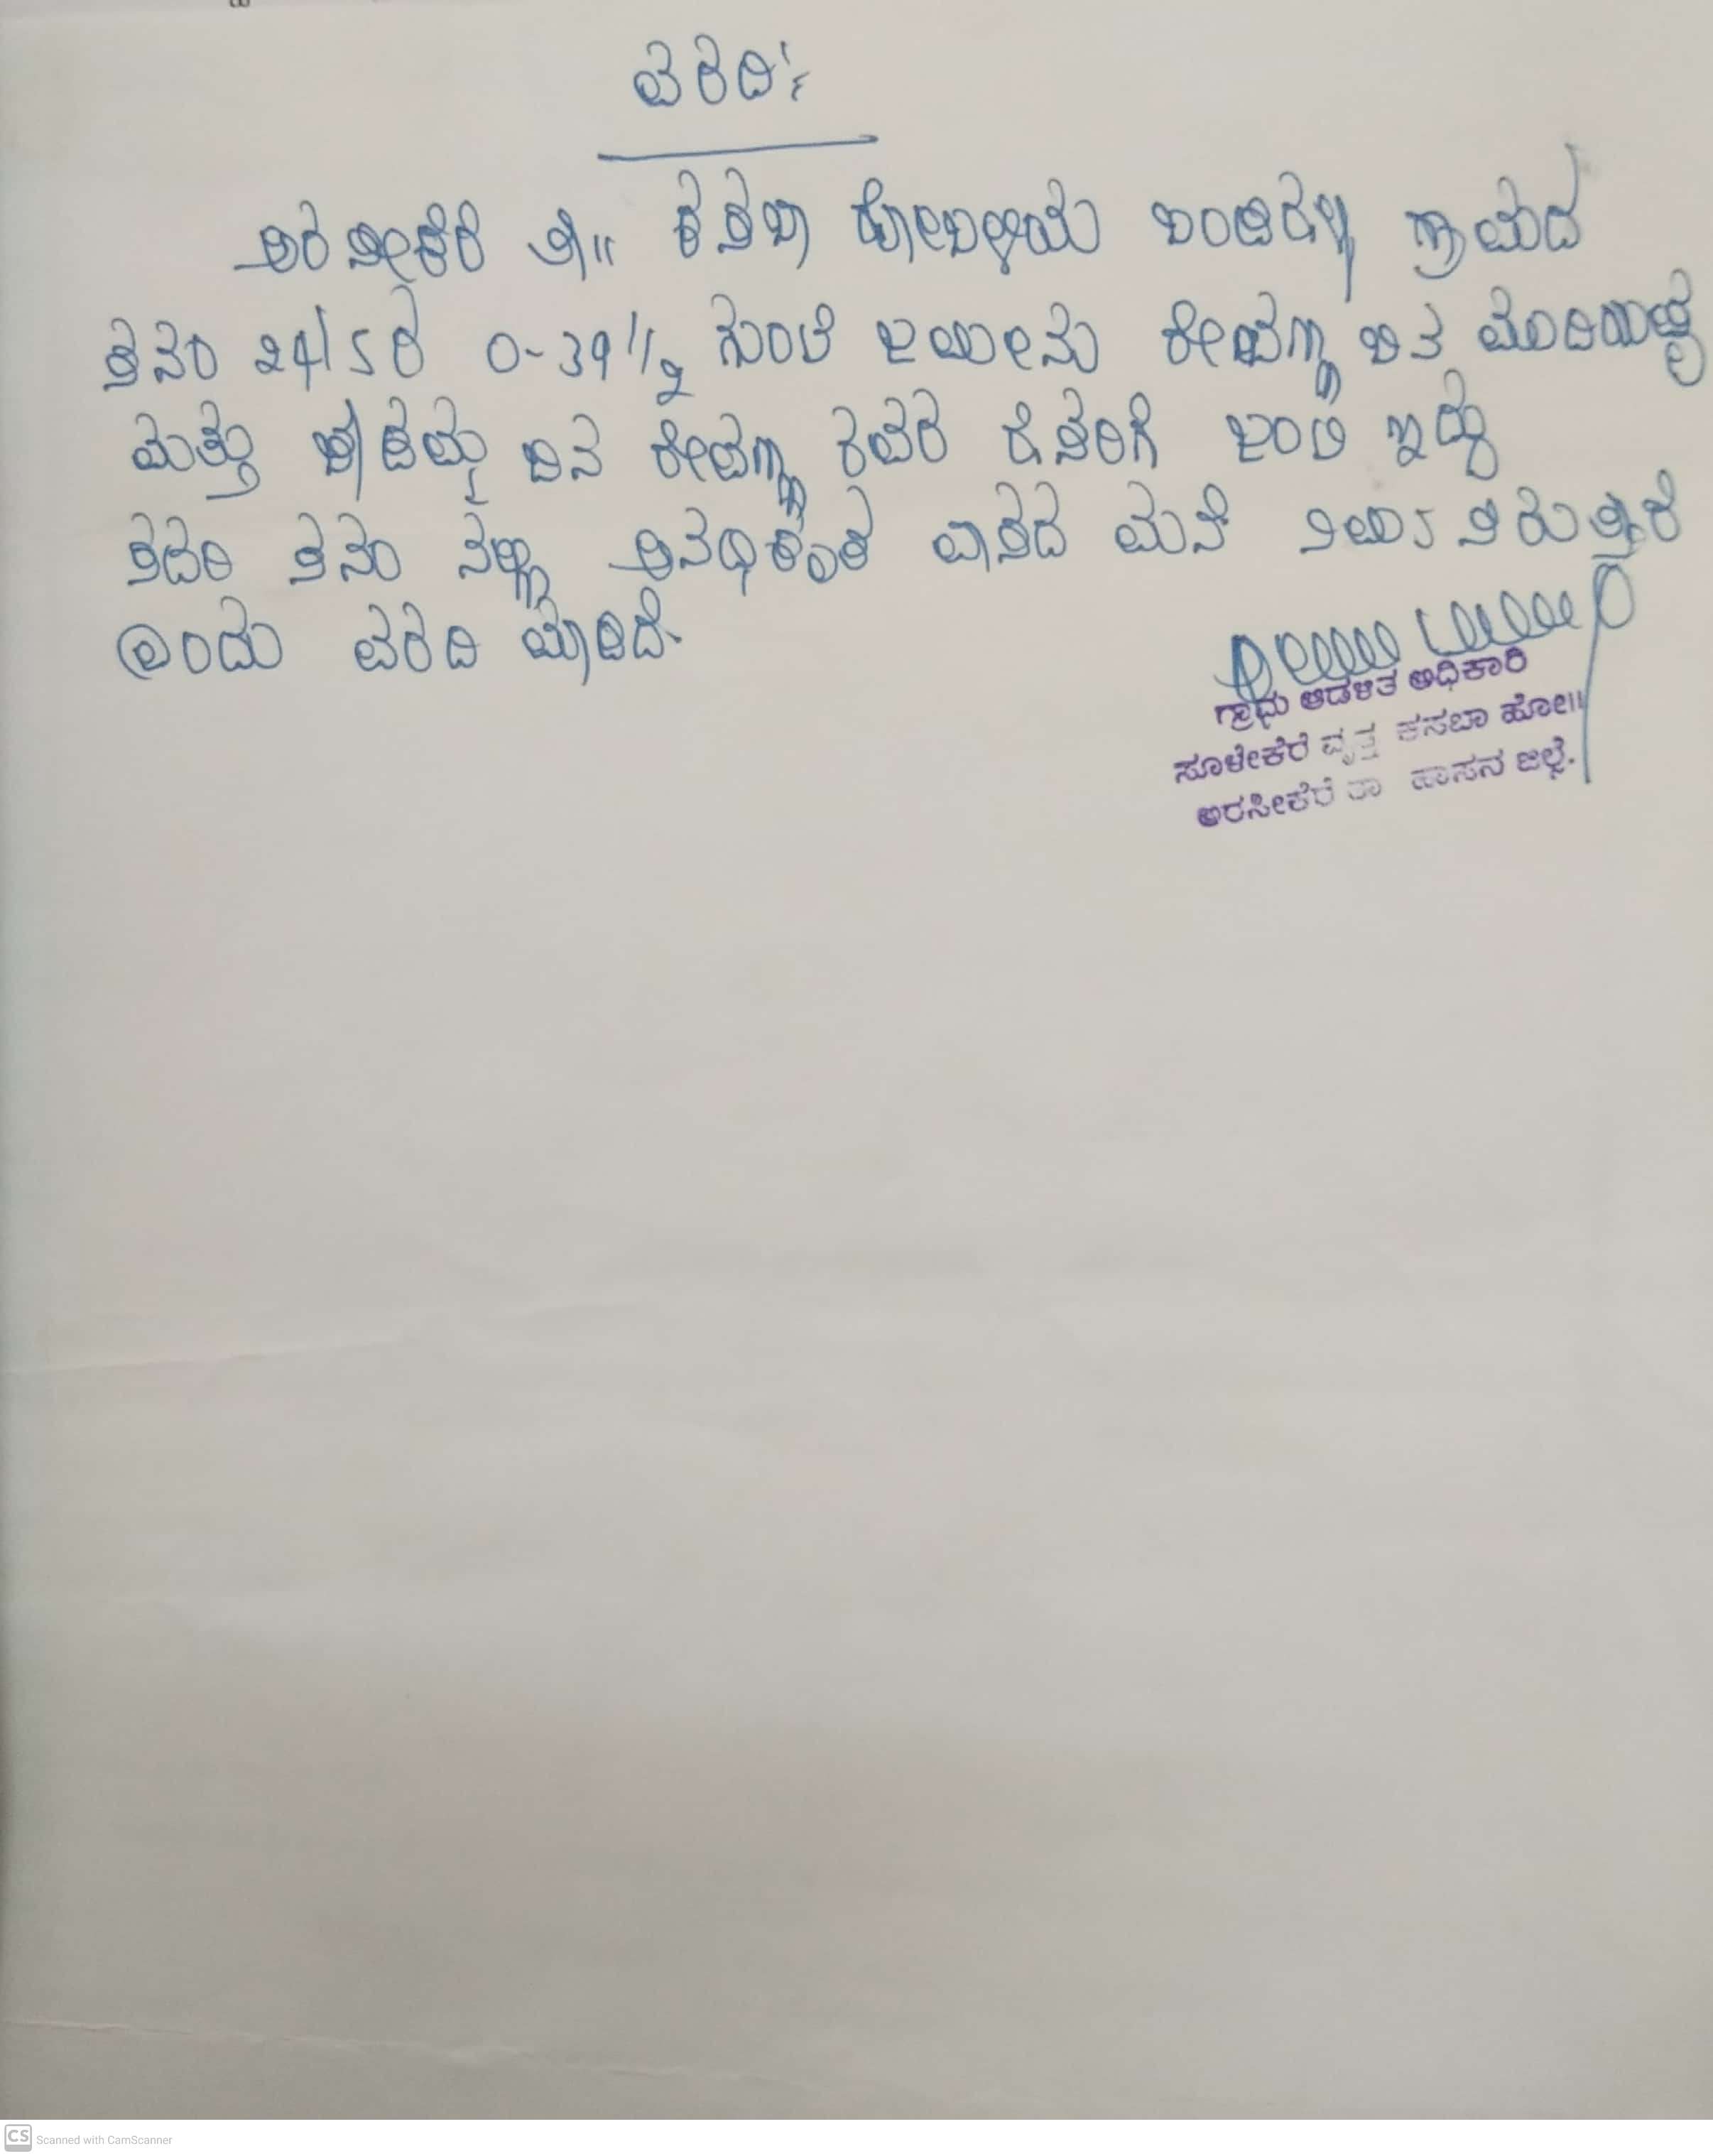 ವರದಿ:
ಅರಸೀಕೆರೆ ತಾ|| ಕಸಬಾ ಹೋಬಳಿಯ ಬಂಡಿಹಳ್ಳಿ ಗ್ರಾಮದ
ಸನಂ 24/5ರ 0-39 1/2 ಗುಂಟೆ ಜಮೀನು ಕೇಶವಣ್ಣ ಬಿನ
ಮತ್ತು ಬಿನ ಕೇಶವಣ್ಣ ರವರ ಹೆಸರಿಗೆ ಜಂಟಿ ಇದ್ದು
ಸದರಿ ಸನಂ ನಲ್ಲಿ ಅನಧಿಕೃತ ವಾಸದ ಮನೆ ನಿರ್ಮಿಸಿರುತ್ತಾರೆ
ಎಂದು ವರದಿ ಮಾಡಿದೆ.
ಗ್ರಾಮ ಆಡಳಿತ ಅಧಿಕಾರಿ
ಸೂಳೇಕೆರೆ ವೃತ್ತ ಕಸಬಾ ಹೋ||
ಅರಸೀಕೆರೆ ತಾ ಹಾಸನ ಜಿಲ್ಲೆ.
CS Scanned with CamScanner